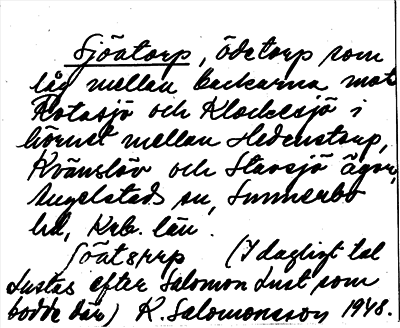 Sjöatorp, ödetorp som
låg mellan backarna mot
Rotasjö och Klockesjö i
hörnet mellan Hedenstorp,
Kvänslöv och Stavsjö ägor,
Angelstads sn, Sunnerbo
hd, Krb. län.
(I dagligt tal
Lustas efter Salomon Lust som
bodde där) K. Salomonsson 1948.